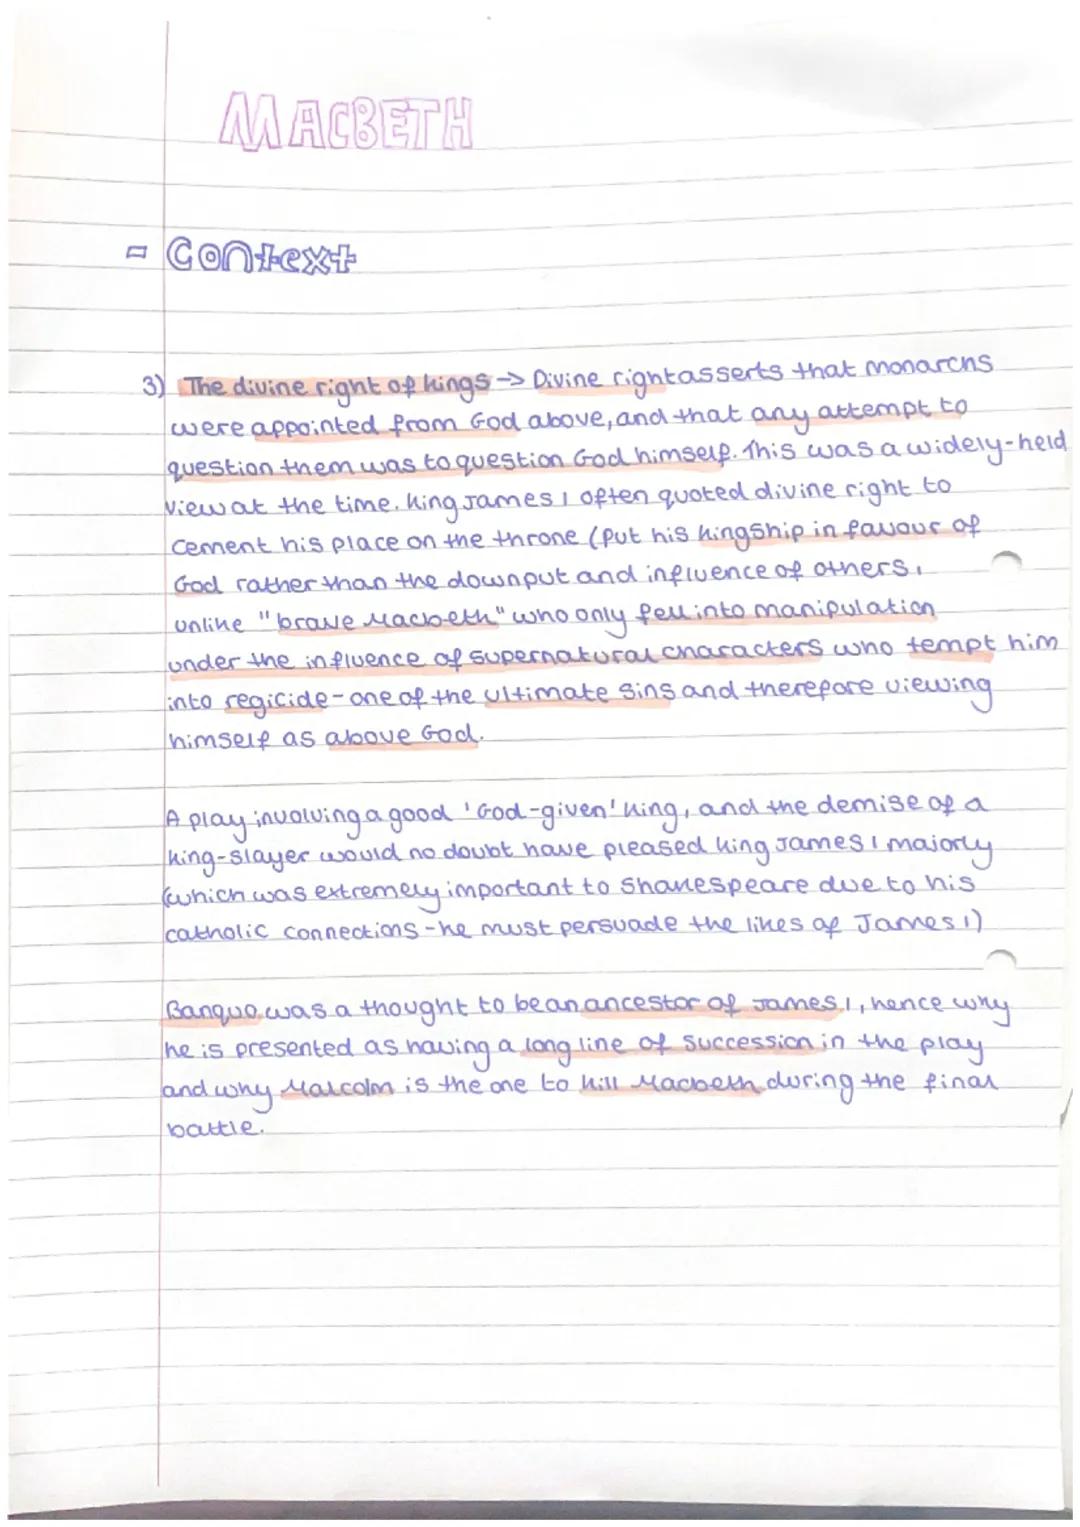 MACBETH
- Context
3) The divine right of kings → Divine right asserts that monarchs
were appointed from God above, and that any attempt to
question them was to question God himself. This was a widely-held
view at the time. King James I often quoted divine right to
cement his place on the throne (put his kingship in favour of
God rather than the downput and influence of others,
unlike "brave Macbeth" who only fell into manipulation
under the influence of supernatural characters who tempt him
into regicide - one of the ultimate sins and therefore viewing
himself as above God.
A play involving a good 'God-given' king, and the demise of a
king-slayer would no doubt have pleased King James I majorly
(which was extremely important to Shakespeare due to his
catholic connections - he must persuade the likes of James I)
Banquo was a thought to be an ancestor of James I, hence why
he is presented as having a long line of succession in the play
and why Malcolm is the one to kill Macbeth during the final
battle.